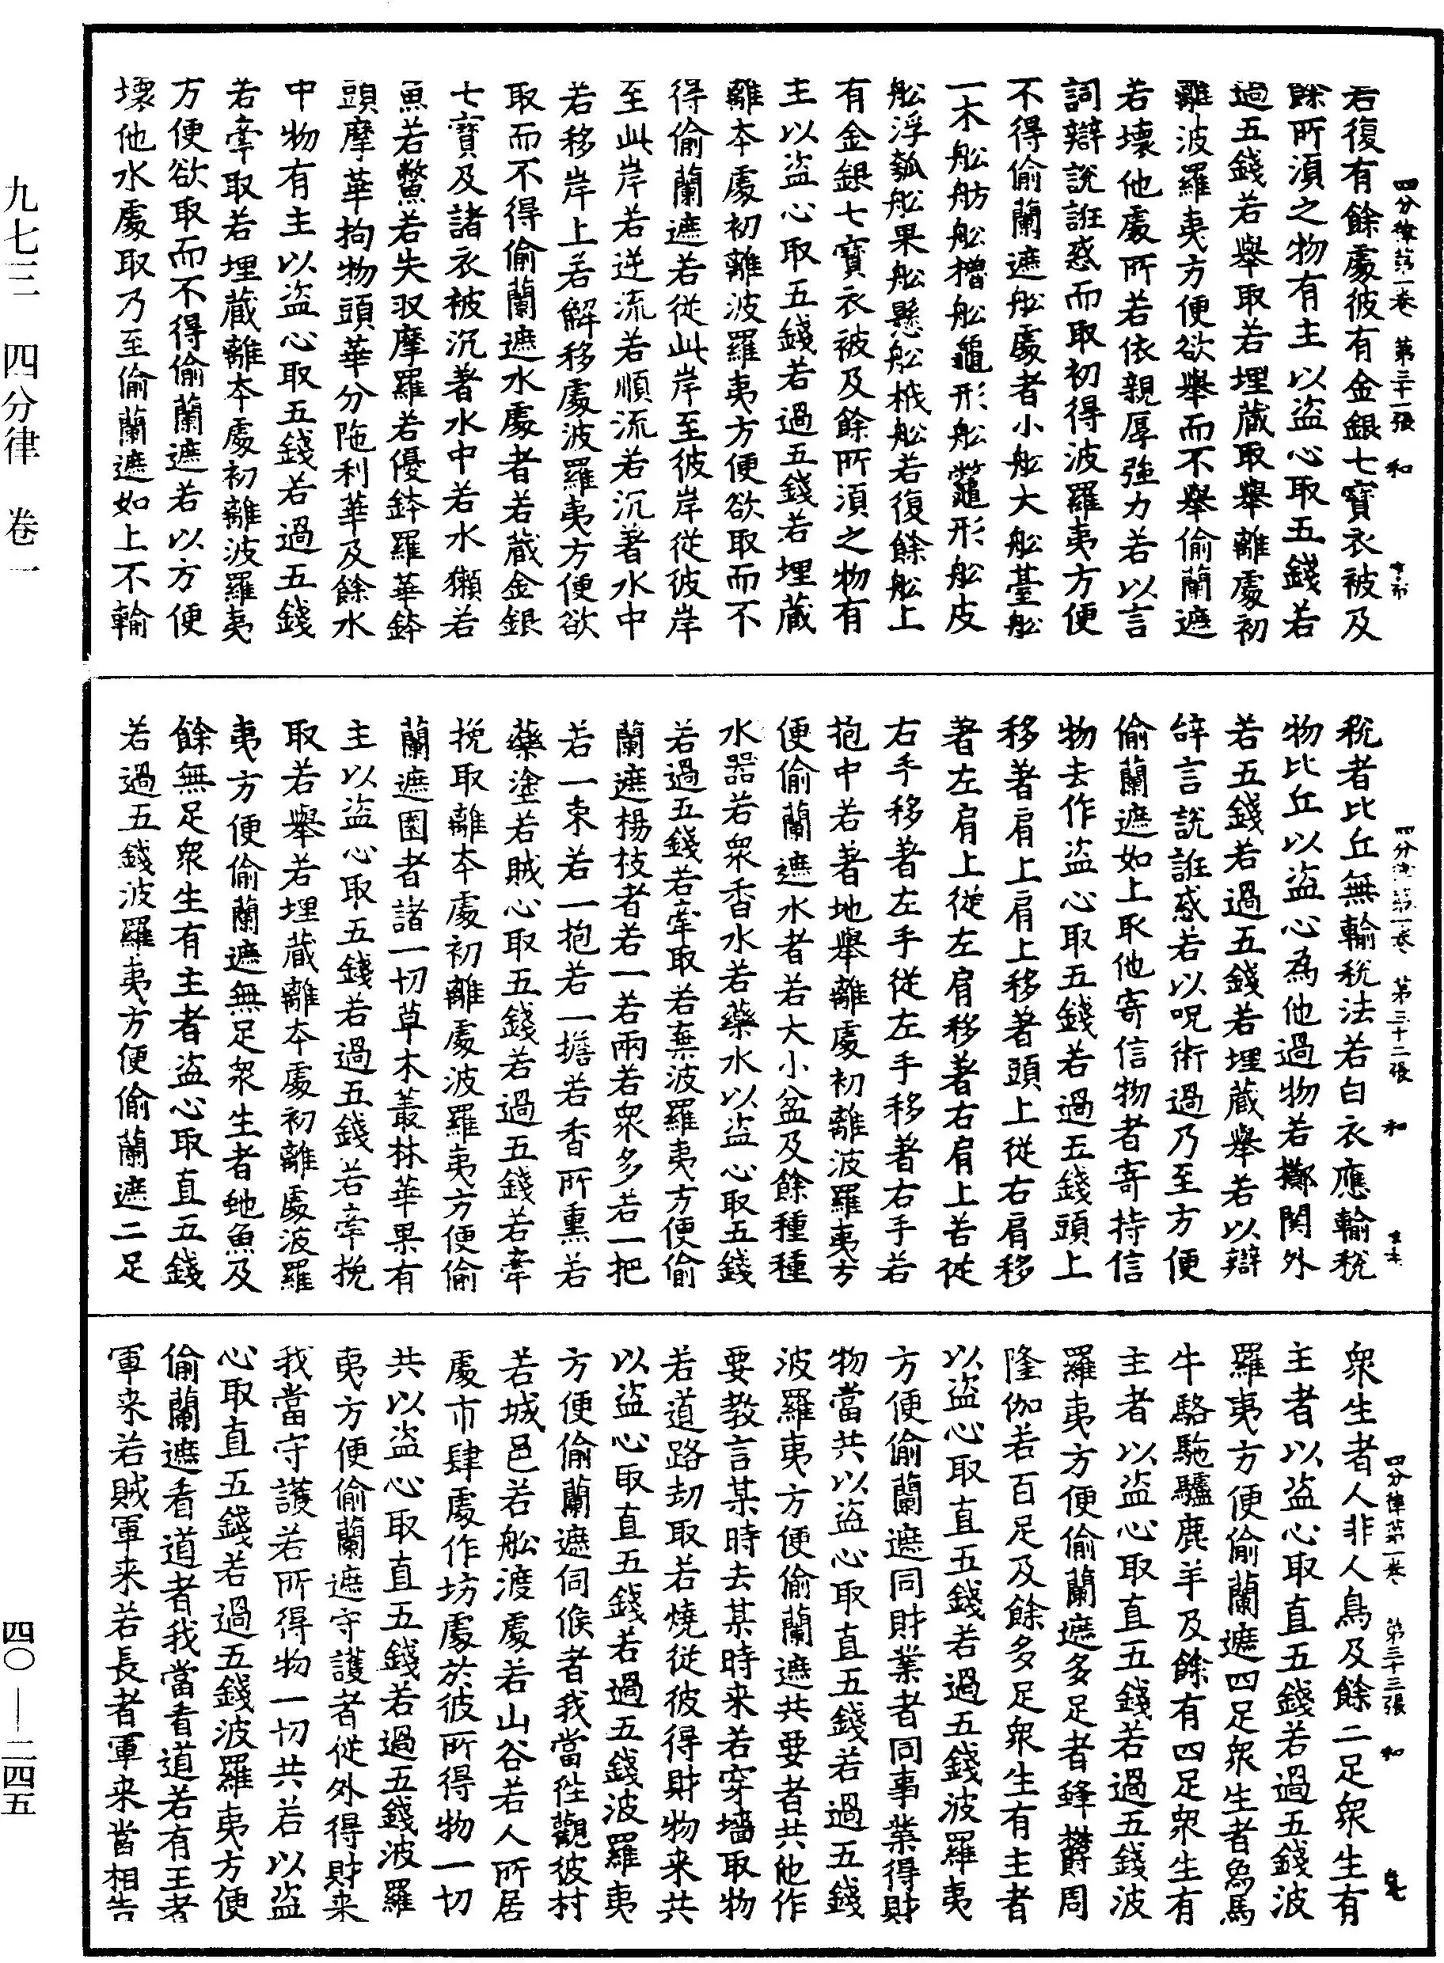 四分律第一卷　第三十一張　和
若復有餘處彼有金銀七寶衣被及
餘所湏之物有主以盜心取五錢若
過五錢若舉取若埋蔵取舉離處初
離波羅夷方便欲舉而不舉偷蘭遮
若壞他處所若依親厚強力若以言
詞辯說誑惑而取初得波羅夷方便
不得偷蘭遮舩處者小舩大舩臺舩
一木舩舫舩櫓舩龜形舩鼈形舩皮
舩浮瓠舩果舩懸舩栰舩若復餘舩上
有金銀七寶衣被及餘所湏之物有
主以盜心取五錢若過五錢若埋蔵
離本處初離波羅夷方便欲取而不
得偷蘭遮若從此岸至彼岸從彼岸
至此岸若逆流若順流若沉著水中
若移岸上若解移處波羅夷方便欲
取而不得偷蘭遮水處者若蔵金銀
七寶及諸衣被沉著水中若水獺若
魚若鱉若失収摩羅若優鉢羅華鉢
頭摩華拘物頭華分陁利華及餘水
中物有主以盜心取五錢若過五錢
若牽取若埋蔵離本處初離波羅夷
方便欲取而不得偷蘭遮若以方便
壞他水處取乃至偷蘭遮如上不輸
四分律第一卷　第三十二張　和
稅者比丘無輸稅法若白衣應輸稅
物比丘以盜心為他過物若擲関外
若五錢若過五錢若埋蔵舉若以辯
辝言說誑惑若以呪術過乃至方便
偷蘭遮如上取他寄信物者寄持信
物去作盜心取五錢若過五錢頭上
移著肩上肩上移著頭上從右肩移
著左肩上從左肩移著右肩上若從
右手移著左手從左手移著右手若
抱中若著地舉離處初離波羅夷方
便偷蘭遮水者若大小盆及餘種種
水器若衆香水若藥水以盜心取五錢
若過五錢若牽取若棄波羅夷方便偷
蘭遮楊枝者若一若兩若衆多若一把
若一束若一抱若一擔若香所熏若
藥塗若賊心取五錢若過五錢若牽
挽取離本處初離處波羅夷方便偷
蘭遮園者諸一切草木叢林華果有
主以盜心取五錢若過五錢若牽挽
取若舉若埋蔵離本處初離處波羅
夷方便偷蘭遮無足衆生者虵魚及
餘無足衆生有主者盜心取直五錢
若過五錢波羅夷方便偷蘭遮二足
四分律第一卷　第三十三張　和
衆生者人非人鳥及餘二足衆生有
主者以盜心取直五錢若過五錢波
羅夷方便偷蘭遮四足衆生者象馬
牛駱駞驢鹿羊及餘有四足衆生有
主者以盜心取直五錢若過五錢波
羅夷方便偷蘭遮多足者蜂欝周
隆伽若百足及餘多足衆生有主者
以盜心取直五錢若過五錢波羅夷
方便偷蘭遮同財業者同事業得財
物當共以盜心取直五錢若過五錢
波羅夷方便偷蘭遮共要者共他作
要教言某時去某時来若穿墻取物
若道路刧取若燒從彼得財物来共
以盜心取直五錢若過五錢波羅夷
方便偷蘭遮伺候者我當往觀彼村
若城邑若舩渡處若山谷若人所居
處市肆處作坊處於彼所得物一切
共以盜心取直五錢若過五錢波羅
夷方便偷蘭遮守護者從外得財来
我當守護若所得物一切共若以盜
心取直五錢若過五錢波羅夷方便
偷蘭遮看道者我當看道若有王者
軍来若賊軍来若長者軍来當相告
九七三　四分律　卷一
四〇——二四五